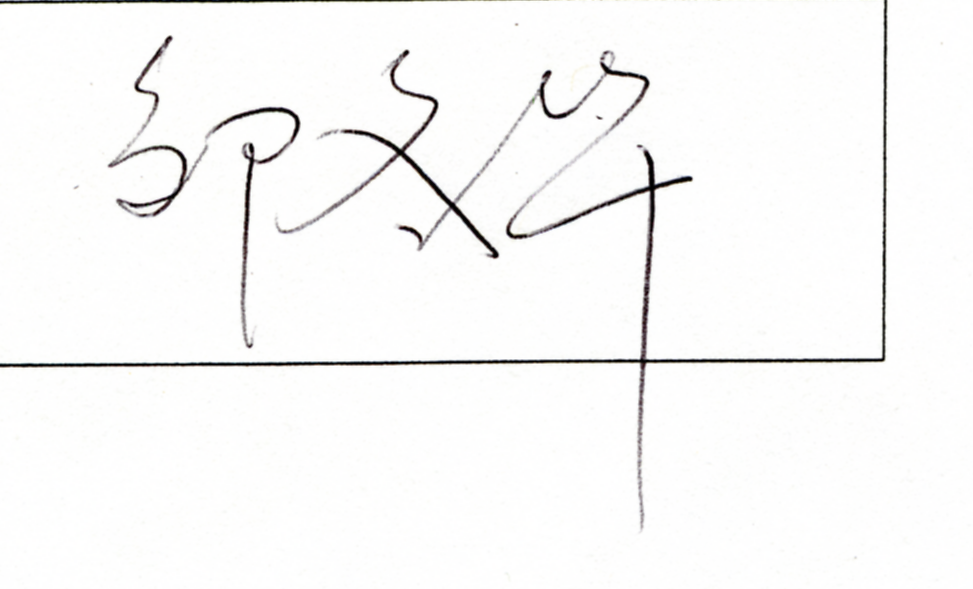 邹文华